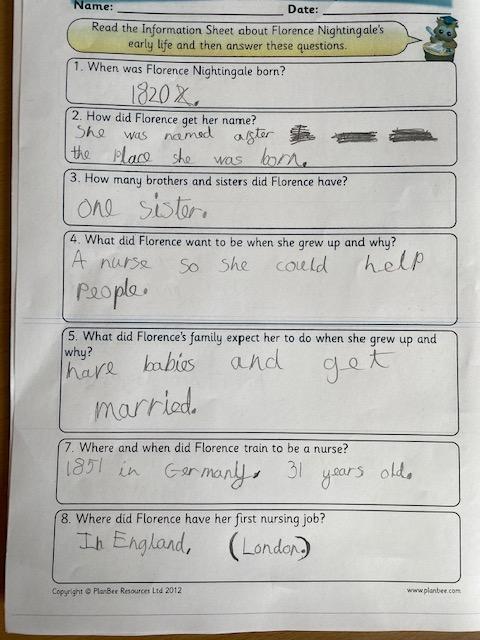 Name: Date:
Read the Information Sheet about Florence Nightingale's
early life and then answer these questions.
1. When was Florence Nightingale born?
1820.
2. How did Florence get her name?
She was named after
the place she was born.
3. How many brothers and sisters did Florence have?
one sister.
4. What did Florence want to be when she grew up and why?
A nurse so she could help
people.
5. What did Florence's family expect her to do when she grew up and
why?
have babies and get
married.
7. Where and when did Florence train to be a nurse?
1851 in Germany. 31 years old.
8. Where did Florence have her first nursing job?
In England, (London.)
Copyright © PlanBee Resources Ltd 2012 www.planbee.com